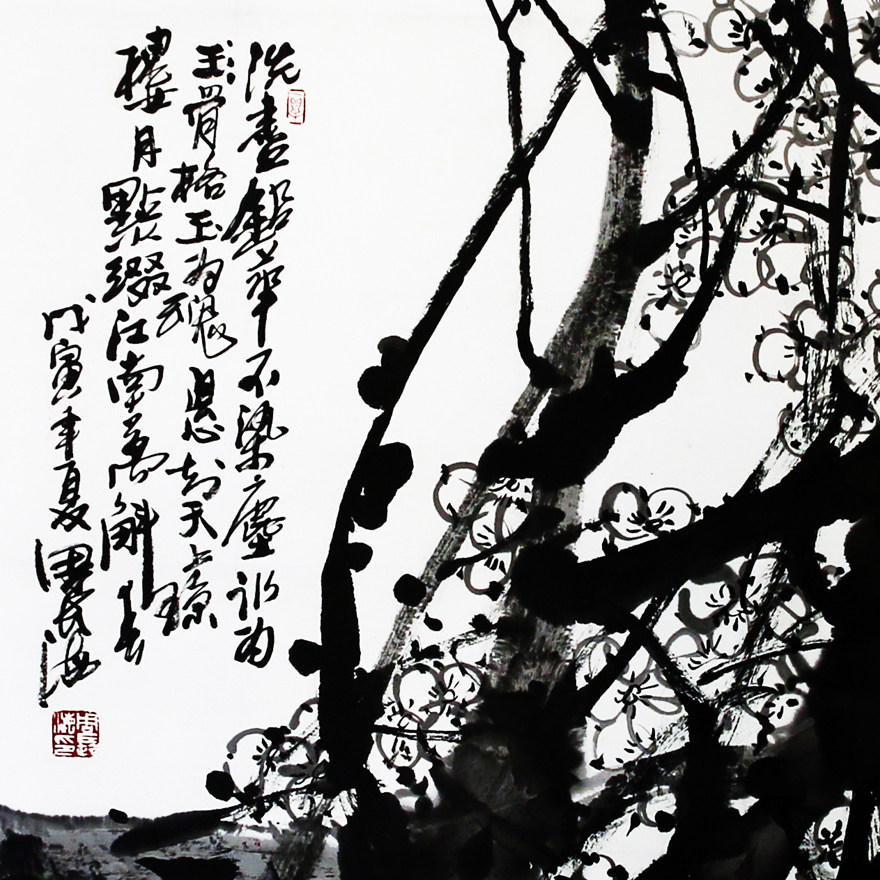 洗盡鉛華不染塵冰為
玉骨格玉為魂懸知天上瓊
樓月點綴江南萬斛春
戊寅年夏周長海